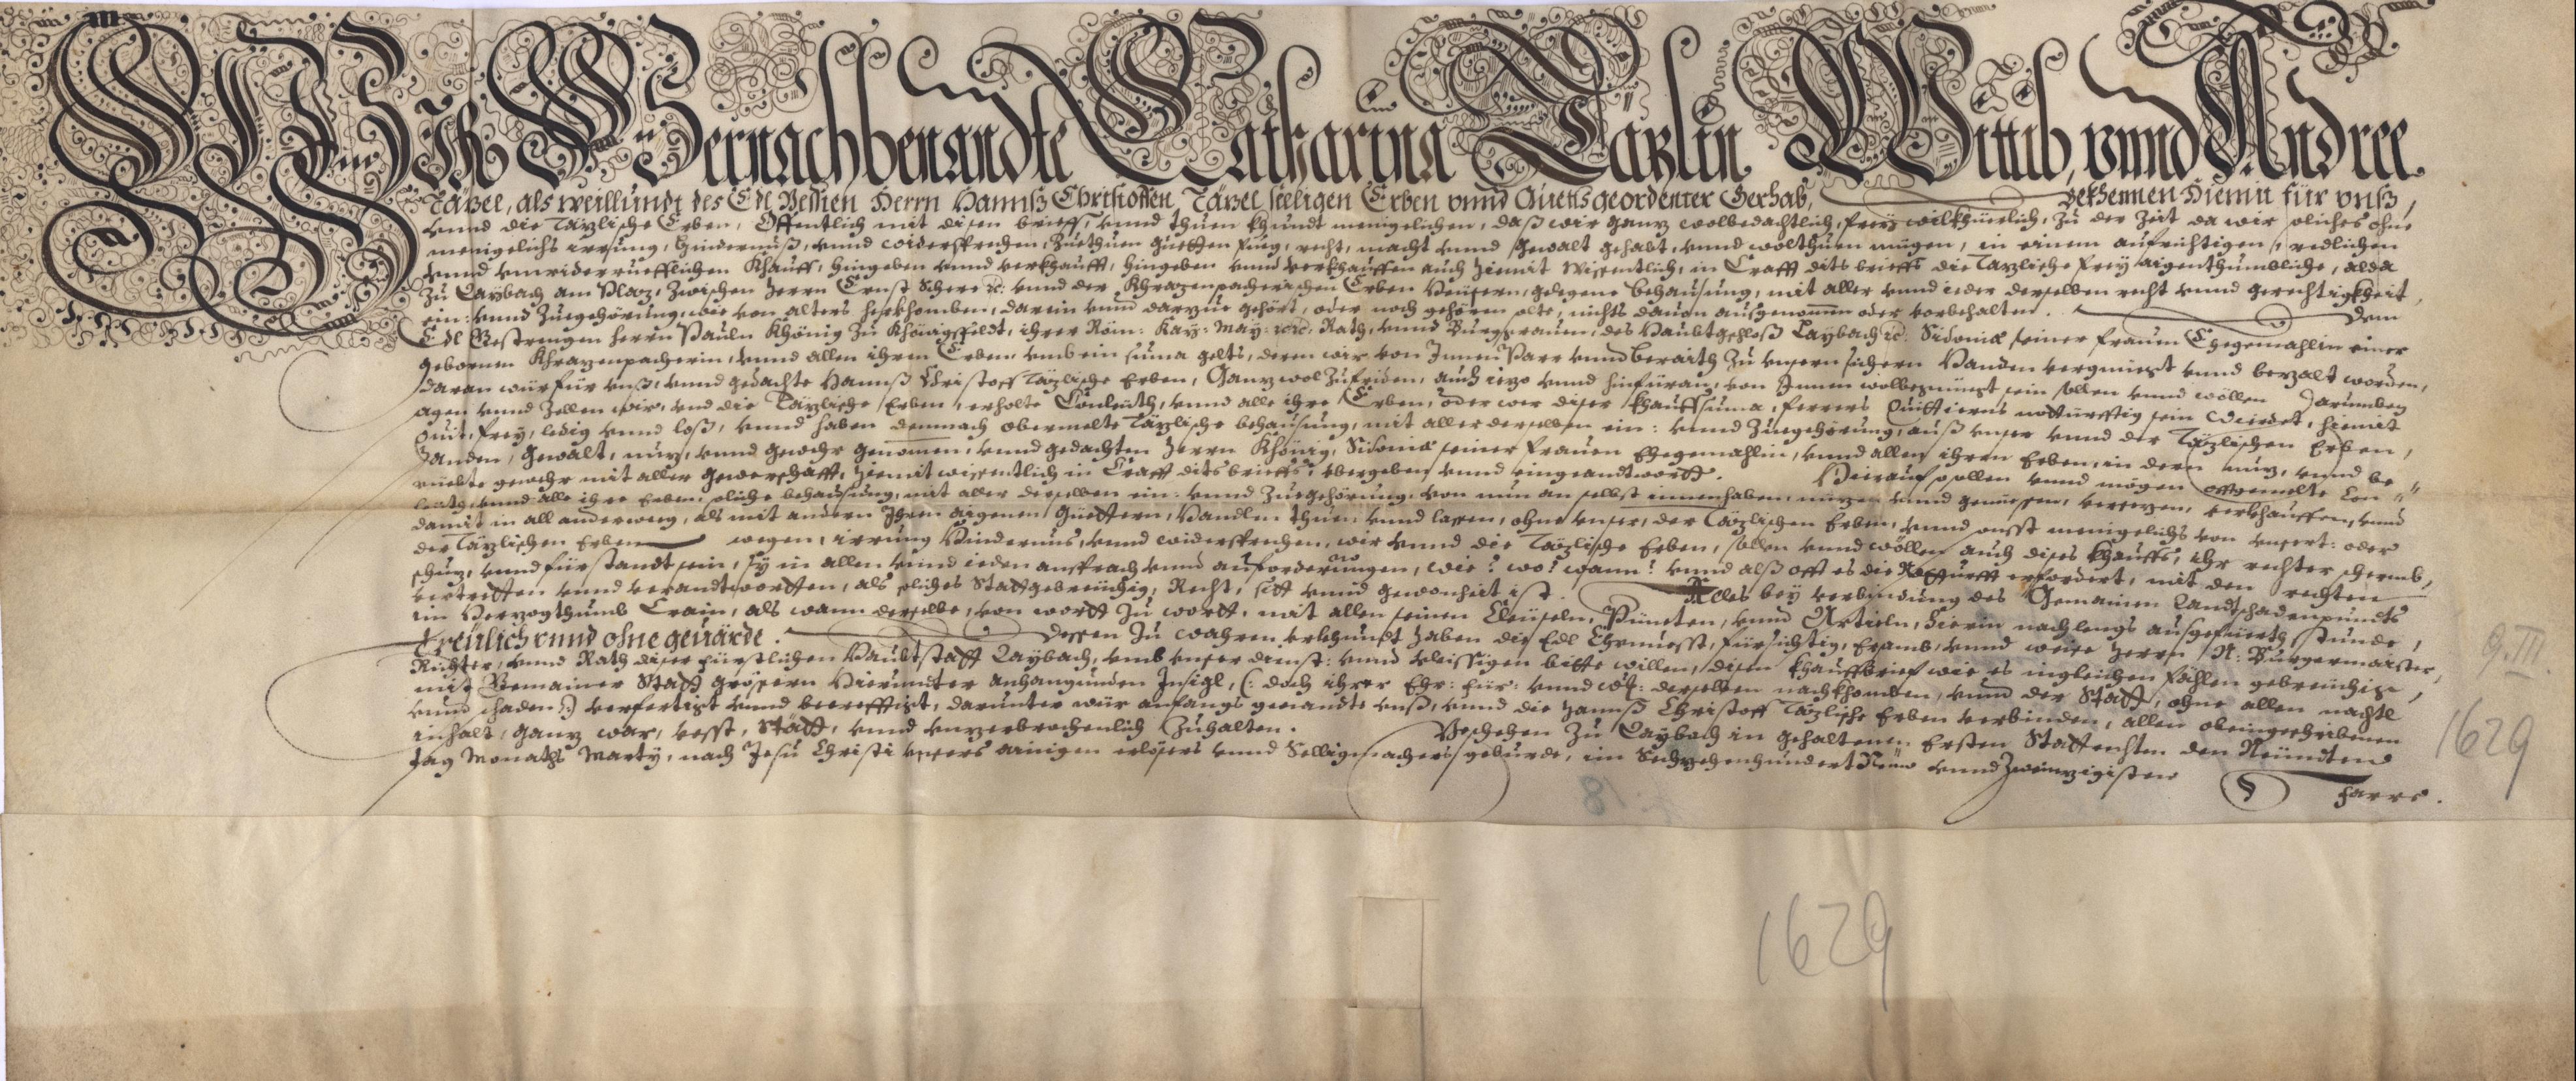 Wir Hernachbenandte Catharina Täzlin Wittib, vnnd Andree
Täzel, als weillundt des Edl Vessten Herrn Hannß Christoffen Täzel seeligen Erben vnnd Guets geordenter Gerhab, bekhennen hiemit für vnß,
vnnd die Täzlische Erben, Offentlich mit disen brieff, vnnd thuen khundt menigelichen, daß wir ganz wolbedachtlich, frey wilkhürlich, zu der Zeit da wir soliches ohne
menigelichs irrung, hindernuß, vnnd widersprechen, zuethuen gueten fueg, recht, macht vnnd gewalt gehabt, vnnd wolthuen mügen, in einem aufrichtigen, redlichen
vnnd vnwiderruefflichen Khauff, hingeben vnnd verkhaufft, hingeben vnnd verkhauffen auch hiemit wissentlich, in Crafft dits brieffs die Täzlische frey aigenthumbliche, alda
zu Laybach am Plaz, zwischen Herrn Ernst Scherer vnnd der Khrazenpacherischen Erben heüsern, gelegene behausung, mit aller vnnd ieder derselben recht vnnd gerechtigkheit,
ein: vnnd Zuegehörung, wie von alters herkhomben, darein vnnd darzue gehört, oder noch gehören solte, nichts dauon außgenommen oder vorbehalten. Dem
Edl Gestrengen Herrn Pauln Khönig zu Khönigsfeldt, ihrer Röm: Kay: May: etc: Rath, vnnd Burggrauen, des Haubtgschloß Laybach etc: Sidonia seiner Frauen Ehegemahlin einer
gebornen Khrazenpacherin, vnnd allen ihren Erben, vmb ein suma gelts, deren wir von Innen Parr vnnd beraith zu vnsern sichern Handen vergnüegt vnnd bezalt worden,
daran wür für vnß, vnnd gedachte Hannß Christoff Täzlische Erben, Ganz wol zufriden, auch iezo vnnd hinfüran, von Innen wolbegnüegt sein sollen vnnd wöllen Darumben
sagen vnnd Zellen wir, vnd die Täzlische Erben, erholte Conleüth, vnnd alle ihre Erben, oder wer diser khauffsuma, ferrers Quittierns notturfftig sein wierdet, hiemit
Quit, frey, ledig vnnd loß, vnnd haben demnach obermelte Täzlische behausung, mit aller derselben ein: vnnd Zuegehörung, auß vnser vnnd der Täzlischen Erben,
Handen, Gewalt, nuz, vnnd gewehr genommen, vnnd gedachten Herrn Khönig, Sidonia seiner Frauen Ehegemahlin, vnnd allen ihren Erben, in dern nuz, vnnd be
ruebte gewehr mit aller gewerschafft, hiemit wissentlich in Crafft dits brieffs, vbergeben vnnd eingeandtwortt. Hierauf sollen vnnd mögen offtgemelte Con
leuth, vnnd alle ihre Erben, soliche behausung, mit aller derselben ein: vnnd Zuegehörung, von nun an selbst innenhaben, nuzen vnnd geniessen, versezen, verkhauffen, vnnd
damit in all anderweeg, als mit andern Ihren aigenen Güettern, Handlen thuen, vnnd lassen, ohne vnser, der Täzlischen Erben, vnnd sonsst menigelichs von vnsert: oder
der Täzlischen Erben wegen, irrung Hindernus, vnnd widersprechen, wir vnnd die Täzlische Erben, sollen vnnd wöllen auch dises khauffs, ihr rechter schermb,
schuz, vnnd fürstandt sein, sy in allen vnnd ieden anspruch vnnd auforderungen, wie? wo? wann? vnnd alß offt es die Notturfft erfordert, mit den rechten
vertretten vnnd verandtwortten, als soliches Stattgebreüchig, Recht, sitt vnnd gewonheit ist. Alles bey verbindung des Gemainen Landtschadenpundts
im Herzogthumb Crain, als wann derselbe, von wortt zu wortt, mit allen seinen Cleüseln, Puncten, vnnd Articln, hierin nachlengs außgefüerth stunde,
treülich vnnd ohne geuärde. Dessen zu wahren vrkhundt haben die Edl Ehrnuesst, fürsichtig, Ersamb, vnnd weise Herrn N: Burgermaister,
Richter, vnnd Rath diser fürstlichen Haubtstatt Laybach, vmb vnser dienst: vnnd vleissigen bitte willen, disen khauffbrief wie es in gleichen fählen gebreüchig,
mit Gemainer Statt grössern Hierunter anhangunden Insigl, (: doch ihrer Ehr: für: vnnd derselben nachkhomben, vnnd der Statt, ohne allen nachtl
vnnd schaden :) verfertigt vnnd becrefftigt, darunter wür anfangs genandte vnß, vnnd die Hannß Christoff Täzlische Erben verbinden, allen obeingeschribenen
inhalt, ganz war, vesst, stätt, vnnd vnzerbrochenlich zuhalten. Beschehen zu Laybach in gehaltenen Ersten Stattrechten den Neündten
tag Monaths Marty, nach Jesu Christi vnsers ainigen erlösers vnnd Selligmachers geburde, im Sechzehenhundert Neün vnnd Zwainzigisten
Jarrs.
9.III.
1629
18
1629